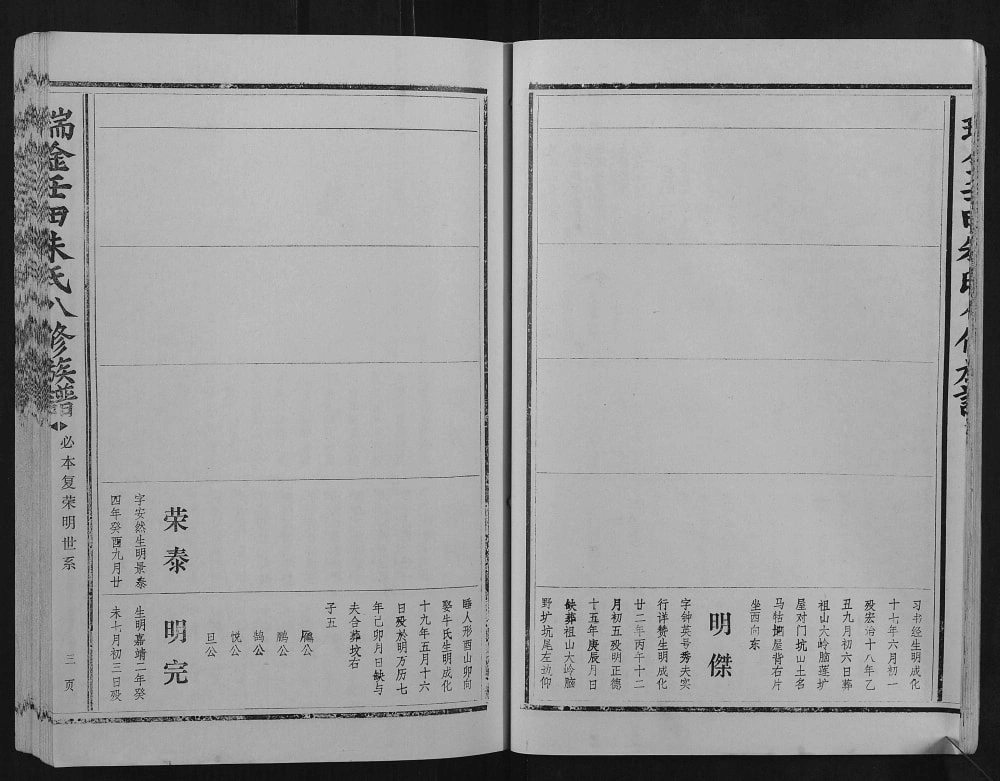 习书经生明成化
十七年六月初一
殁宏治十八年乙
丑九月初六日葬
祖山大岭脑莲圹
屋对门坑山土名
马牯堋屋背右片
坐西向东
明傑
字钟英号秀夫实
行详赞生明成化
廿二年丙午十二
月初五殁明正德
十五年庚辰月日
缺葬祖山大岭脑
野圹坑尾左边仰
睡人形酉山卯向
娶牛氏生明成化
十九年五月十六
日殁於明万历七
年己卯月日缺与
夫合葬坟右
子五
鵰公
鹏公
鹄公
悦公
旦公
荣泰
字安然生明景泰
四年癸酉九月廿
明完
生明嘉靖二年癸
未七月初三日殁
瑞金壬田朱氏八修族譜
必本复荣明世系
三页